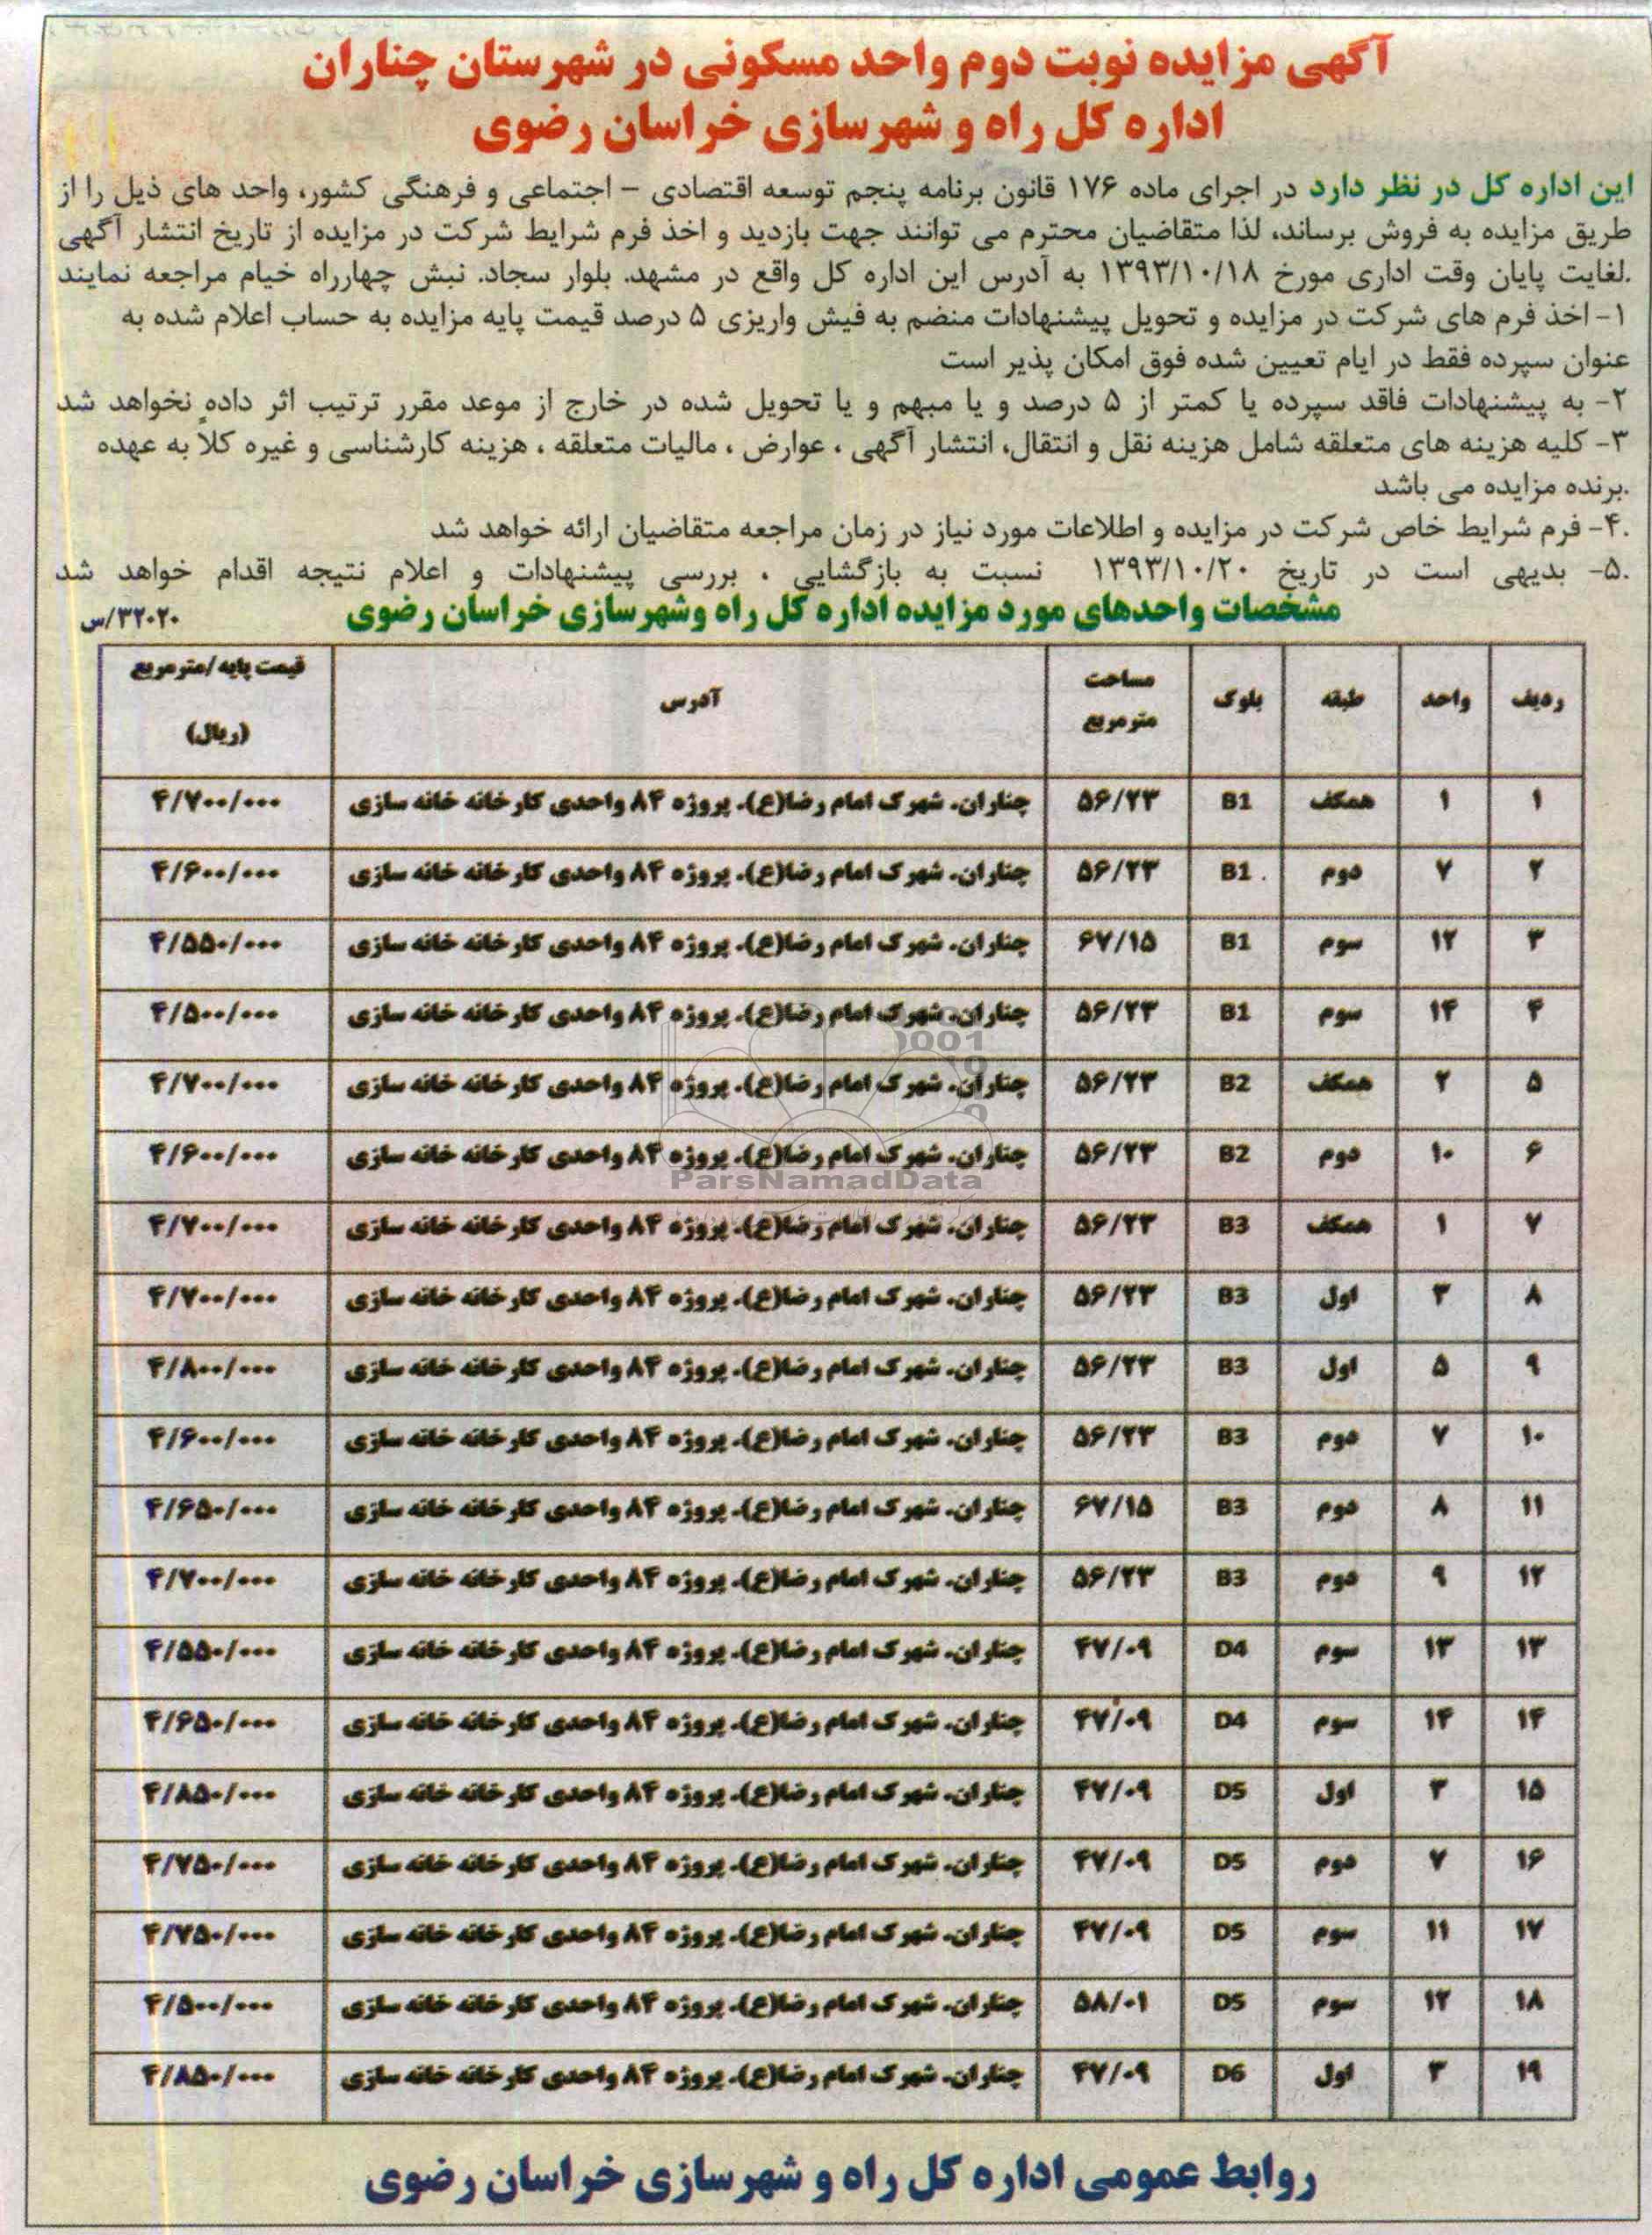 آگهی مزایده نوبت دوم واحد مسکونی در شهرستان چناران
اداره کل راه و شهرسازی خراسان رضوی
این اداره کل در نظر دارد در اجرای ماده ۱۷۶ قانون برنامه پنجم توسعه اقتصادی – اجتماعی و فرهنگی کشور، واحد های ذیل را از
طریق مزایده به فروش برساند، لذا متقاضیان محترم می توانند جهت بازدید و اخذ فرم شرایط شرکت در مزایده از تاریخ انتشار آگهی
.لغایت پایان وقت اداری مورخ ۱۳۹۳/۱۰/۱۸ به آدرس این اداره کل واقع در مشهد. بلوار سجاد. نبش چهارراه خیام مراجعه نمایند
۱- اخذ فرم های شرکت در مزایده و تحویل پیشنهادات منضم به فیش واریزی ۵ درصد قیمت پایه مزایده به حساب اعلام شده به
عنوان سپرده فقط در ایام تعیین شده فوق امکان پذیر است
۲- به پیشنهادات فاقد سپرده یا کمتر از ۵ درصد و یا مبهم و یا تحویل شده در خارج از موعد مقرر ترتیب اثر داده نخواهد شد
۳- کلیه هزینه های متعلقه شامل هزینه نقل و انتقال، انتشار آگهی ، عوارض ، مالیات متعلقه ، هزینه کارشناسی و غیره کلاً به عهده
.برنده مزایده می باشد
.۴- فرم شرایط خاص شرکت در مزایده و اطلاعات مورد نیاز در زمان مراجعه متقاضیان ارائه خواهد شد
.۵- بدیهی است در تاریخ ۱۳۹۳/۱۰/۲۰ نسبت به بازگشایی ، بررسی پیشنهادات و اعلام نتیجه اقدام خواهد شد
مشخصات واحدهای مورد مزایده اداره کل راه وشهرسازی خراسان رضوی ۳۲۰۲۰/س
ردیف واحد طبقه بلوک مساحت مترمربع آدرس قیمت پایه/مترمربع (ریال)
۱ ۱ همکف B1 ۵۶/۲۳ چناران. شهرک امام رضا(ع). پروژه ۸۴ واحدی کارخانه خانه سازی ۴/۷۰۰/۰۰۰
۲ ۷ دوم B1 ۵۶/۲۳ چناران. شهرک امام رضا(ع). پروژه ۸۴ واحدی کارخانه خانه سازی ۴/۶۰۰/۰۰۰
۳ ۱۲ سوم B1 ۶۷/۱۵ چناران. شهرک امام رضا(ع). پروژه ۸۴ واحدی کارخانه خانه سازی ۴/۵۵۰/۰۰۰
۴ ۱۴ سوم B1 ۵۶/۲۳ چناران. شهرک امام رضا(ع). پروژه ۸۴ واحدی کارخانه خانه سازی ۴/۵۰۰/۰۰۰
۵ ۲ همکف B2 ۵۶/۲۳ چناران. شهرک امام رضا(ع). پروژه ۸۴ واحدی کارخانه خانه سازی ۴/۷۰۰/۰۰۰
۶ ۱۰ دوم B2 ۵۶/۲۳ چناران. شهرک امام رضا(ع). پروژه ۸۴ واحدی کارخانه خانه سازی ۴/۶۰۰/۰۰۰
ParsNamadData
۷ ۱ همکف B3 ۵۶/۲۳ چناران. شهرک امام رضا(ع). پروژه ۸۴ واحدی کارخانه خانه سازی ۴/۷۰۰/۰۰۰
۸ ۳ اول B3 ۵۶/۲۳ چناران. شهرک امام رضا(ع). پروژه ۸۴ واحدی کارخانه خانه سازی ۴/۷۰۰/۰۰۰
۹ ۵ اول B3 ۵۶/۲۳ چناران. شهرک امام رضا(ع). پروژه ۸۴ واحدی کارخانه خانه سازی ۴/۸۰۰/۰۰۰
۱۰ ۷ دوم B3 ۵۶/۲۳ چناران. شهرک امام رضا(ع). پروژه ۸۴ واحدی کارخانه خانه سازی ۴/۶۰۰/۰۰۰
۱۱ ۸ دوم B3 ۶۷/۱۵ چناران. شهرک امام رضا(ع). پروژه ۸۴ واحدی کارخانه خانه سازی ۴/۶۵۰/۰۰۰
۱۲ ۹ دوم B3 ۵۶/۲۳ چناران. شهرک امام رضا(ع). پروژه ۸۴ واحدی کارخانه خانه سازی ۴/۷۰۰/۰۰۰
۱۳ ۱۳ سوم D4 ۴۷/۰۹ چناران. شهرک امام رضا(ع). پروژه ۸۴ واحدی کارخانه خانه سازی ۴/۵۵۰/۰۰۰
۱۴ ۱۴ سوم D4 ۴۷/۰۹ چناران. شهرک امام رضا(ع). پروژه ۸۴ واحدی کارخانه خانه سازی ۴/۶۵۰/۰۰۰
۱۵ ۳ اول D5 ۴۷/۰۹ چناران. شهرک امام رضا(ع). پروژه ۸۴ واحدی کارخانه خانه سازی ۴/۸۵۰/۰۰۰
۱۶ ۷ دوم D5 ۴۷/۰۹ چناران. شهرک امام رضا(ع). پروژه ۸۴ واحدی کارخانه خانه سازی ۴/۷۵۰/۰۰۰
۱۷ ۱۱ سوم D5 ۴۷/۰۹ چناران. شهرک امام رضا(ع). پروژه ۸۴ واحدی کارخانه خانه سازی ۴/۷۵۰/۰۰۰
۱۸ ۱۲ سوم D5 ۵۸/۰۱ چناران. شهرک امام رضا(ع). پروژه ۸۴ واحدی کارخانه خانه سازی ۴/۵۰۰/۰۰۰
۱۹ ۳ اول D6 ۴۷/۰۹ چناران. شهرک امام رضا(ع). پروژه ۸۴ واحدی کارخانه خانه سازی ۴/۸۵۰/۰۰۰
روابط عمومی اداره کل راه و شهرسازی خراسان رضوی